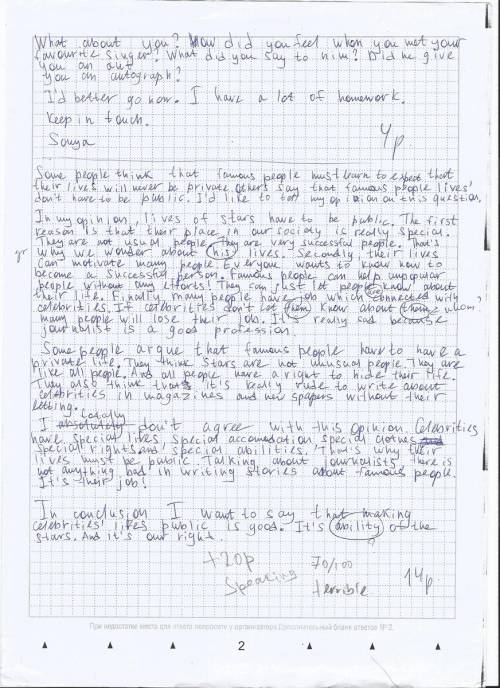 What about you? How did you feel when you met your
favourite singer? What did you say to him? Did he give
you an aut
you an autograph?
I'd better go now. I have a lot of homework.
Keep in touch.
Sonya
4p
Some people think that famous people must learn to expect that
their lives will never be private. Others say that famous people lives'
don't have to be public. I'd like to my opinion on this question.
In my opinion, lives of stars have to be public. The first
reason is that their place in our society is really special.
They are not usual people. They are very successful people. That's
gr why we wonder about his lives. Secondly, their lives
can motivate many people. Everyone wants to know how to
become a successful person. Famous people can help unpopular
people without any efforts! They can just let people know about
their life. Finally, many people have job which connected with
celebrities. If celebrities don't let them know about them
many people will lose their job. It's really sad because
journalist is a good profession.
Some people argue that famous people have to have a
private life. They think stars are not unusual people. They are
like all people. And all people have a right to hide their life.
They also think that it's really rude to write about
celebrities in magazines and newspapers without their
letting.
totally
I absolutely don't agree with this opinion. Celebrities
have special lives, special accomodation, special clothes and
special rights and special abilities. That's why their
lives must be public. Talking about journalists, there is
not anything bad in writing stories about famous people.
It's their job!
In conclusion I want to say that making
celebrities' lives public is good. It's ability of the
stars. And it's our right.
+20p 70/100 14p.
Speaking terrible
При недостатке места для ответа попросите у организатора Дополнительный бланк ответов № 2.
2